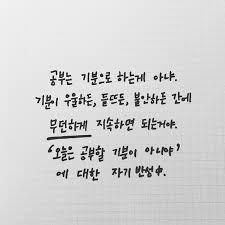 공부는 기분으로 하는게 아냐.
기분이 우울하든, 들뜨든, 불안하든 간에
무던하게 지속하면 되는거야.
'오늘은 공부할 기분이 아니야'
에 대한 자기 반성中.